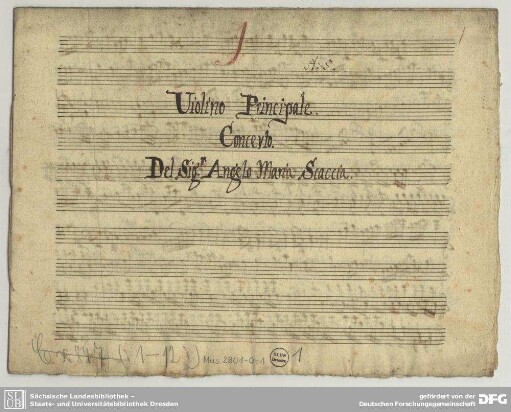 A. S.
Violino Principale.
Concerto.
Del Sigr. Angelo Maria Scaccia.
(1-12)
Mus 2801-O-1
SLUB Dresden
1
SLUB
Sächsische Landesbibliothek –
Staats- und Universitätsbibliothek Dresden
gefördert von der
Deutschen Forschungsgemeinschaft
DFG